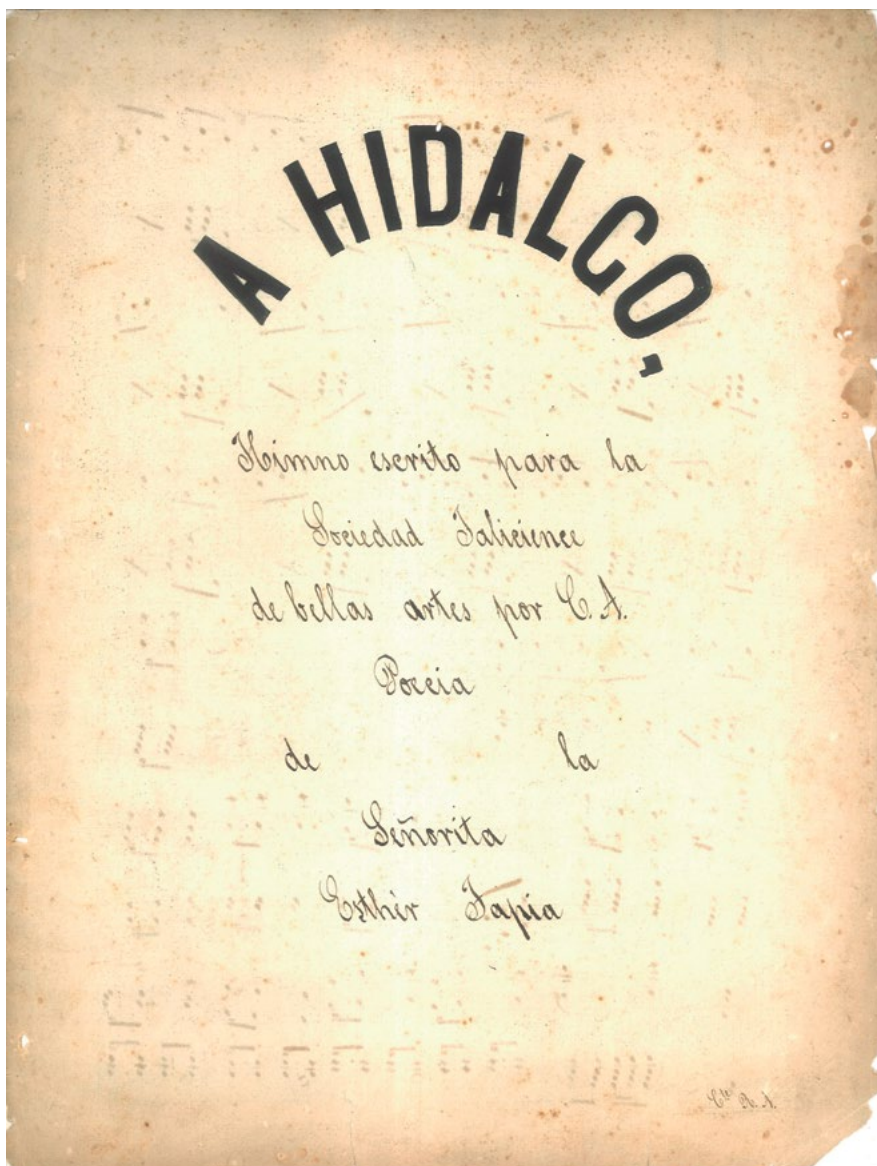 A HIDALGO,
Himno escrito para la
Sociedad Jalicience
de bellas artes por C. A.
Poecia
de la
Señorita
Esthér Tapia